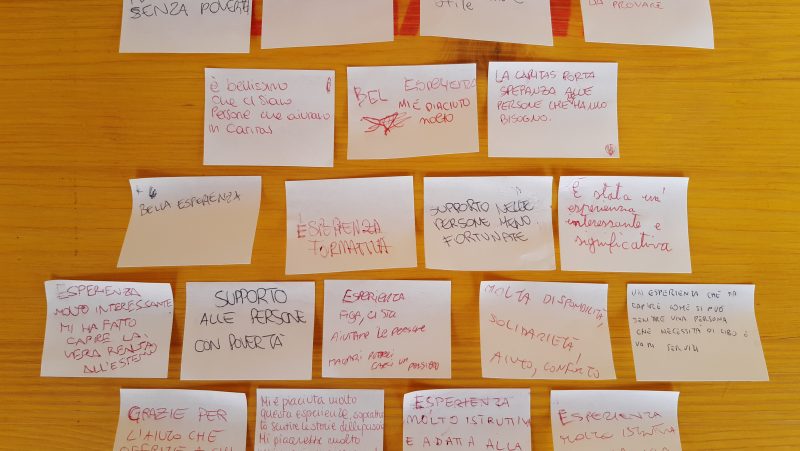 SENZA POVERTÀ
UTILE
DA PROVARE
è bellissimo
che ci siano
persone che aiutano
in Caritas
BEL ESPERIENZA
MI È PIACIUTO
MOLTO
LA CARITAS PORTA
SPERANZA ALLE
PERSONE CHE HANNO
BISOGNO.
BELLA ESPERIENZA
ESPERIENZA
FORMATIVA
SUPPORTO NELLE
PERSONE MENO
FORTUNATE
È stata un'
esperienza
interessante e
significativa
ESPERIENZA
MOLTO INTERESSANTE
MI HA FATTO
CAPIRE LA
VERA REALTÀ
ALL'ESTERNO
SUPPORTO
ALLE PERSONE
CON POVERTÀ
ESPERIENZA
FIGA, CI STA
AIUTARE LE PERSONE
MAGARI POTREI
FARCI UN PENSIERO
MOLTA DISPONIBILITÀ,
SOLIDARIETÀ!
AIUTO, CONFORTO
UN ESPERIENZA CHE FA
CAPIRE COME SI PUÒ
SENTIRE UNA PERSONA
CHE NECESSITÀ DI CIBO E
VARI SERVIZI
GRAZIE PER
L'AIUTO CHE
Mi è piaciuta molto
questa esperienza, soprattutto
sentire le storie delle persone
Mi piacerebbe molto
ESPERIENZA
MOLTO ISTRUTTIVA
E ADATTA ALLA
ESPERIENZA
MOLTO ISTRUTTIVA